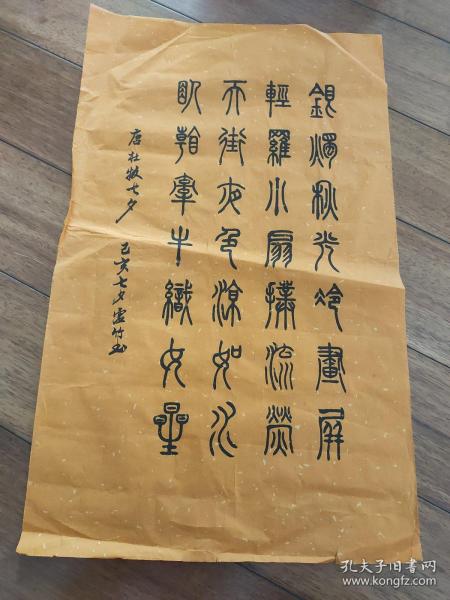 銀燭秋光冷畫屏
輕羅小扇撲流螢
天街夜色涼如水
臥看牽牛織女星
唐杜牧七夕
己亥七夕竹书
孔夫子旧书网
www.kongfz.com